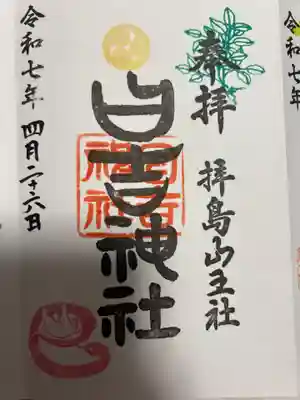 奉拝
拝島山王社
日吉神社
令和七年 四月二十六日
令和七年